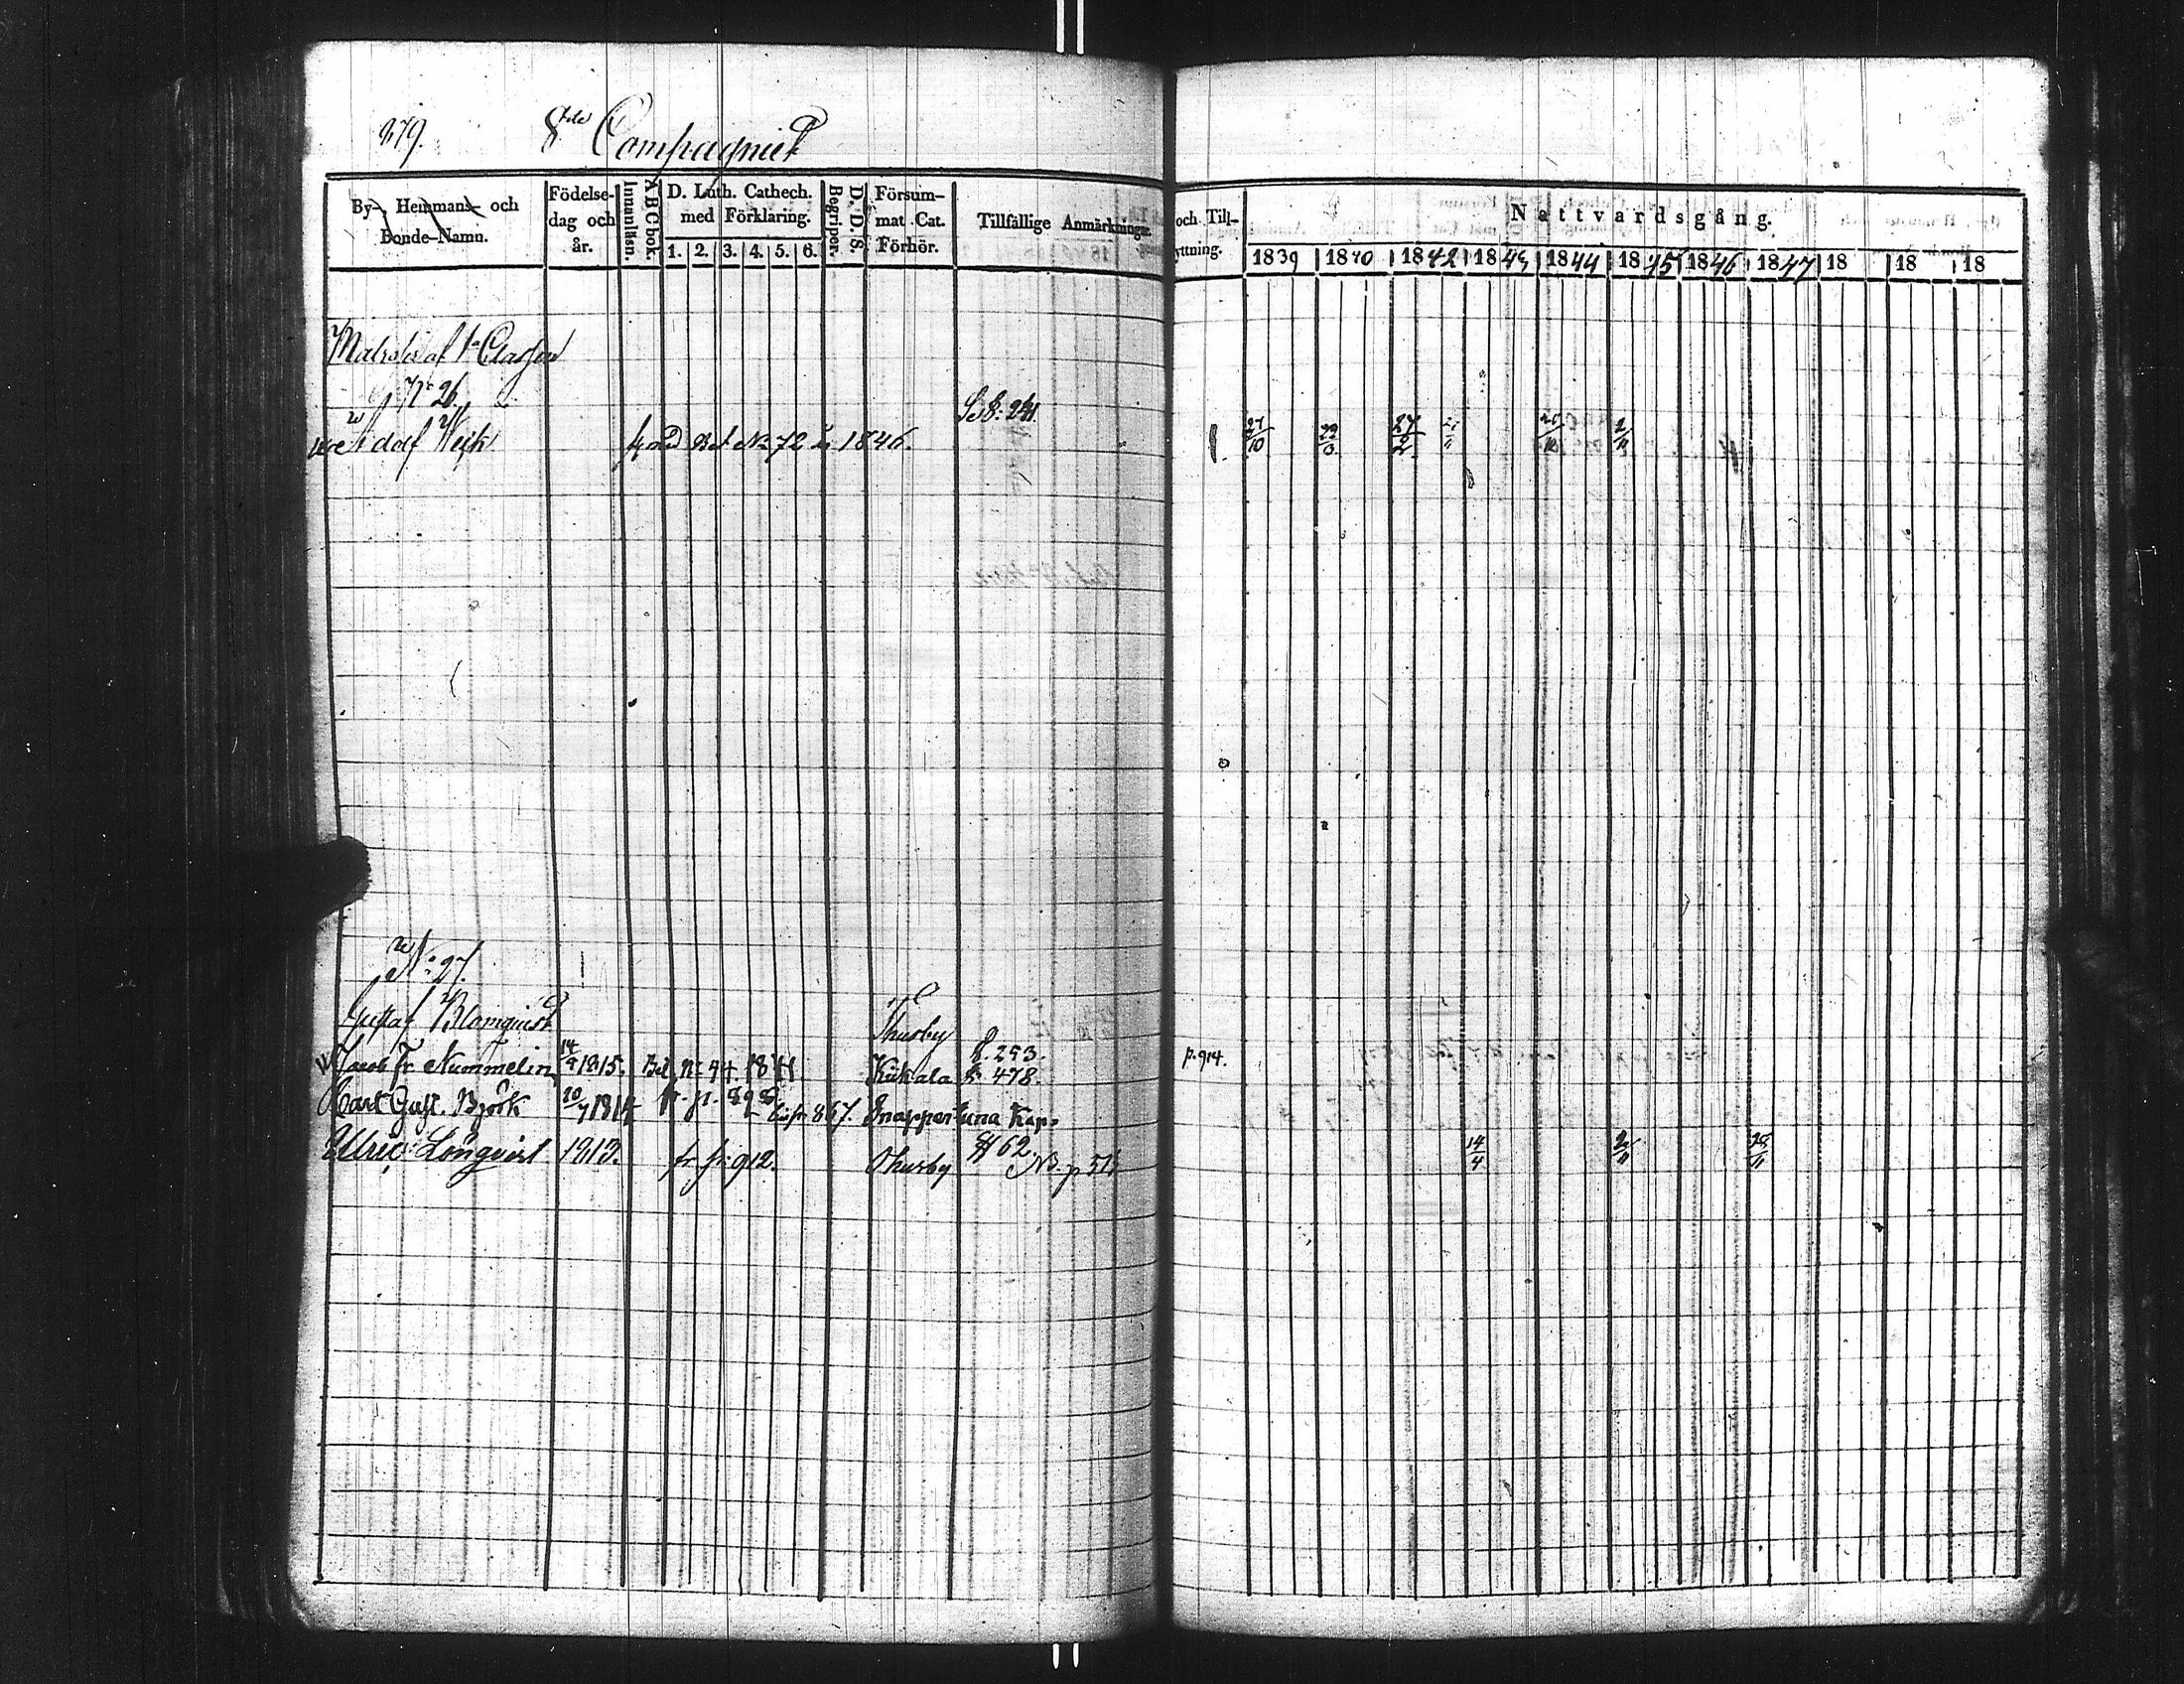 879. 8de Compagniet
By-, Hemmans- och Bonde-Namn.
Födelse-dag och år.
Innanläsn.
ABC bok.
D. Luth. Cathech. med Förklaring.
1. 2. 3. 4. 5. 6.
Begriper.
D. D. S.
Försum-mat Cat. Förhör.
Tillfällige Anmärkningar.
och Till-
yttning.
Nattvardsgång.
1839 1840 1842 1843 1844 1845 1846 1847 18 18 18
Matroser af 1a Classen
No 26.
Adolf Weik Bet No 72 1846. 241 27/10 27/2 2/11
No 27.
Gustaf Blomquist Thusby
Jacob Fr Nummelin 14/9 1815. Bet. No 94. 1841 Kiikala 478. p. 914.
Carl Gust. Björk 20/7 1814 fr. p. 898 867. Snappertuna Kap.
Ulric Lönqvist 1813. fr. p. 912. Thusby 62. NB. p 14/4 2/11